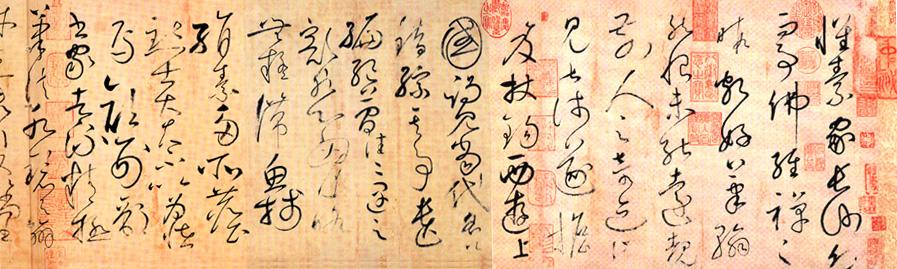 懷素家長沙幼而
事佛經禪之
暇頗好筆翰
然恨未能遠覩
前人之奇迹所
見甚淺遂擔
笈杖錫西遊上
國謁見當代名公
錯綜其事遺
編絕簡往往遇之
豁然心胸略
無疑滯魚牋
絹素多所塵
點士大夫不以為怪
焉顏刑部
書家者流精極
筆法水鏡之辨